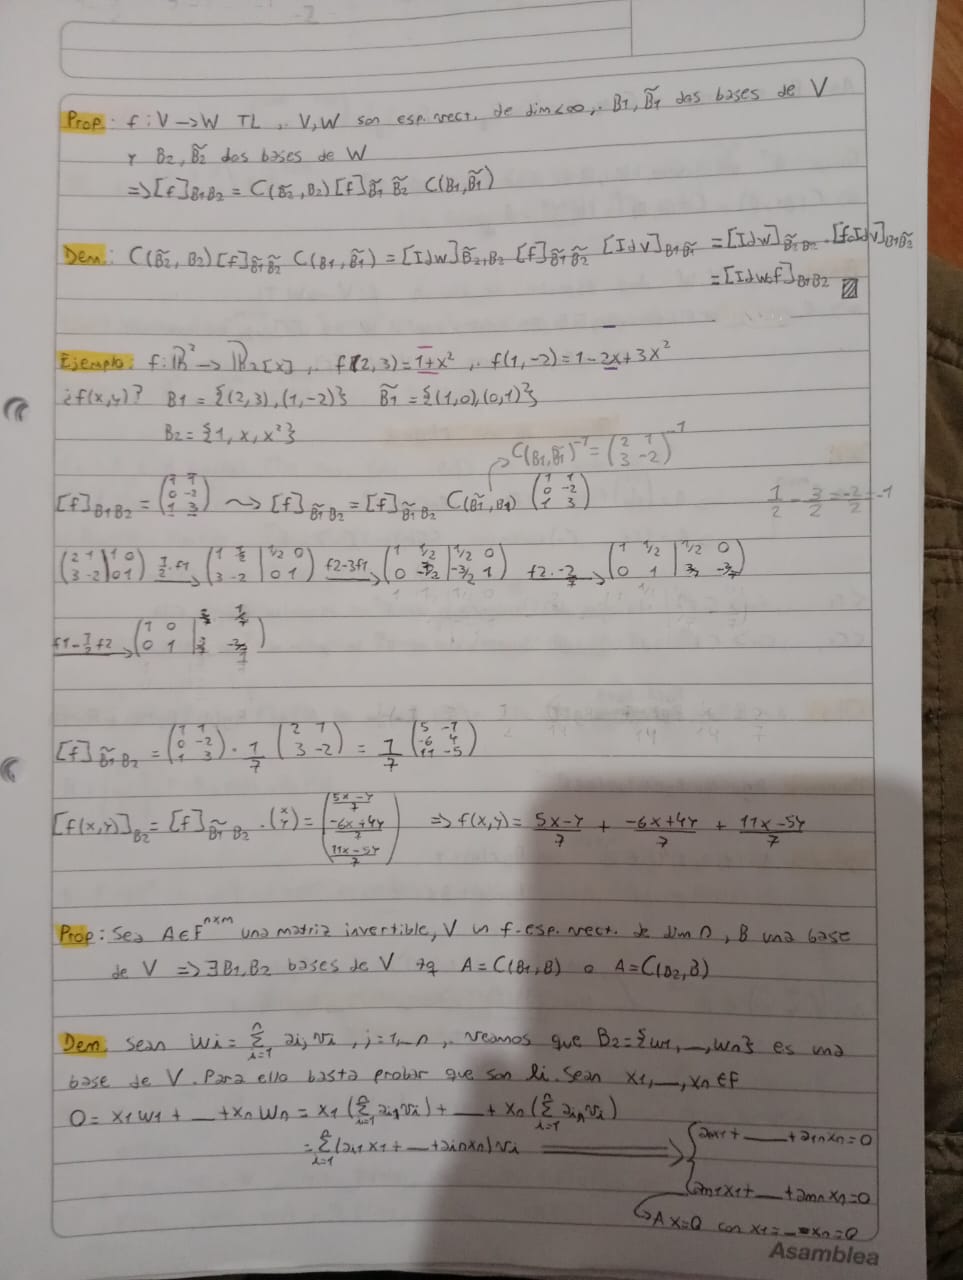 Prop: f: V → W TL ,. V, W son esp. vect. de dim <∞,. B1, B̃1 dos bases de V
Y B2, B̃2 dos bases de W
=> [f]B1B2 = C(B̃2, B2) [f]B̃1 B̃2 C(B1, B̃1)
Dem: C(B̃2, B2) [f]B̃1B̃2 C(B1, B̃1) = [Idw]B̃2,B2 [f]B̃1B̃2 [IdV]B1B̃1 = [Idw]B̃2B2 · [f∘IdV]B1B̃2
= [Idw∘f]B1B2
Ejemplo: f: R² → R2[x] ,. f(2,3) = 1+x² ,. f(1,-2) = 1-2x+3x²
¿f(x,y)? B1 = {(2,3),(1,-2)} B̃1 = {(1,0),(0,1)}
B2 = {1, x, x²}
C(B1,B̃1)⁻¹ = (2 1 / 3 -2)⁻¹
[f]B1B2 = (1 1 / 0 -2 / 1 3) ⇝ [f]B̃1B2 = [f]B̃1B2 C(B̃1,B1) (1 1 / 0 -2 / 1 3)
1/2 - 3/2 = -2/2 = -1
(2 1 | 1 0 / 3 -2 | 0 1) 1/2·f1 → (1 1/2 | 1/2 0 / 3 -2 | 0 1) f2-3f1 → (1 1/2 | 1/2 0 / 0 -7/2 | -3/2 1) f2·-2/7 → (1 1/2 | 1/2 0 / 0 1 | 3/7 -2/7)
f1-1/2f2 → (1 0 | 2/7 1/7 / 0 1 | 3/7 -2/7)
[f]B̃1B2 = (1 1 / 0 -2 / 1 3) · 1/7 (2 1 / 3 -2) = 1/7 (5 -1 / -6 4 / 11 -5)
[f(x,y)]B2 = [f]B̃1B2 · (x / y) = (5x-y/7 / -6x+4y/7 / 11x-5y/7) => f(x,y) = 5x-y/7 + -6x+4y/7 + 11x-5y/7
Prop: Sea A∈F^nxm una matriz invertible, V un f-esp. vect. de dim n, B una base
de V => ∃B1,B2 bases de V tq A = C(B1,B) o A = C(B2,B)
Dem Sean wi = Σ(i=1, n) aij vi , j=1,_n ,. veamos que B2 = {w1,__,wn} es una
base de V. Para ello basta probar que son li. Sean x1,__,xn ∈F
0 = x1w1 + __ + xn wn = x1 (Σ(i=1, n) ai1vi) + __ + xn (Σ(i=1, n) ainvi)
= Σ(i=1, n) (ai1 x1 + __ + ain xn) vi ⟹ { a11x1 + ___ + a1n xn = 0
an1x1 + __ + ann xn = 0
↳ Ax=0 con x1 = __ = xn = 0
Asamblea